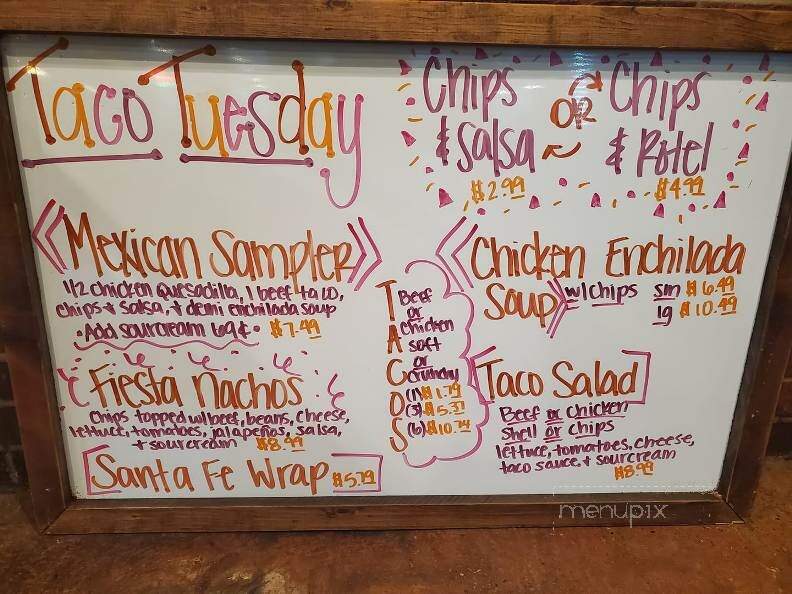 Taco Tuesday
Chips & Salsa
$2.99
OR
Chips & Rotel
$4.99
Mexican Sampler
1/2 chicken quesadilla, 1 beef taco,
chips & salsa, & demi enchilada soup
• Add sourcream 69¢ • $7.49
Fiesta Nachos
Chips topped w/beef, beans, cheese,
lettuce, tomatoes, jalapeños, salsa,
& sourcream $8.99
Santa Fe Wrap $5.79
TACOS
Beef
or
chicken
soft
or
crunchy
(1) $1.79
(3) $5.37
(6) $10.74
Chicken Enchilada
Soup w/chips sm $6.49
lg $10.49
Taco Salad
Beef or chicken
Shell or chips
lettuce, tomatoes, cheese,
taco sauce, & sourcream
$8.99
menupix